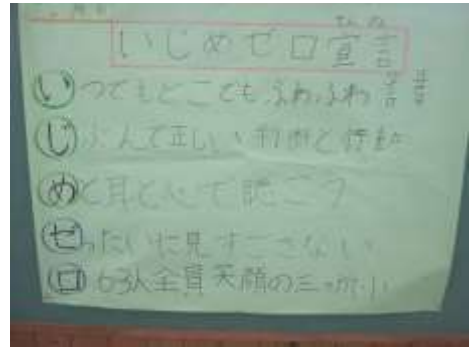 いじめゼロ宣言
いつでもどこでもふわふわ言葉
じぶんで正しい判断と行動
めと耳と心で聴こう
ぜったいに見すごさない
ロ 63人全員 笑顔の三ヶ小